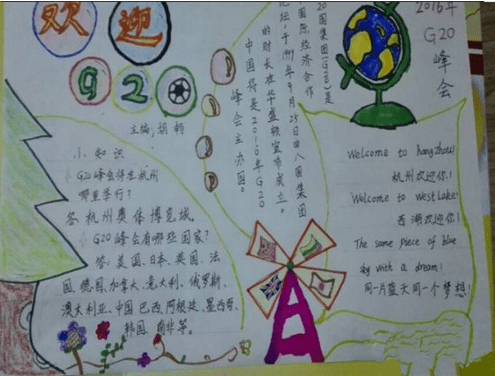 欢迎
G20
主编:
小知识
G20峰会将在杭州
哪里举行?
答:杭州奥体博览城。
G20峰会有哪些国家?
答:美国、日本、英国、法
国、德国、加拿大、意大利、俄罗斯、
澳大利亚、中国、巴西、阿根廷、墨西哥、
韩国、南非等。
20国集团(G20)是
国际经济合作
论坛,于1999年9月25日由八国集团
的财长在华盛顿宣布成立。
中国将是2016年G20
峰会主办国。
2016年
G20
峰会
Welcome to hangzhou!
杭州欢迎你!
Welcome to West Lake!
西湖欢迎你!
The same piece of blue
sky with a dream!
同一片蓝天同一个梦想!